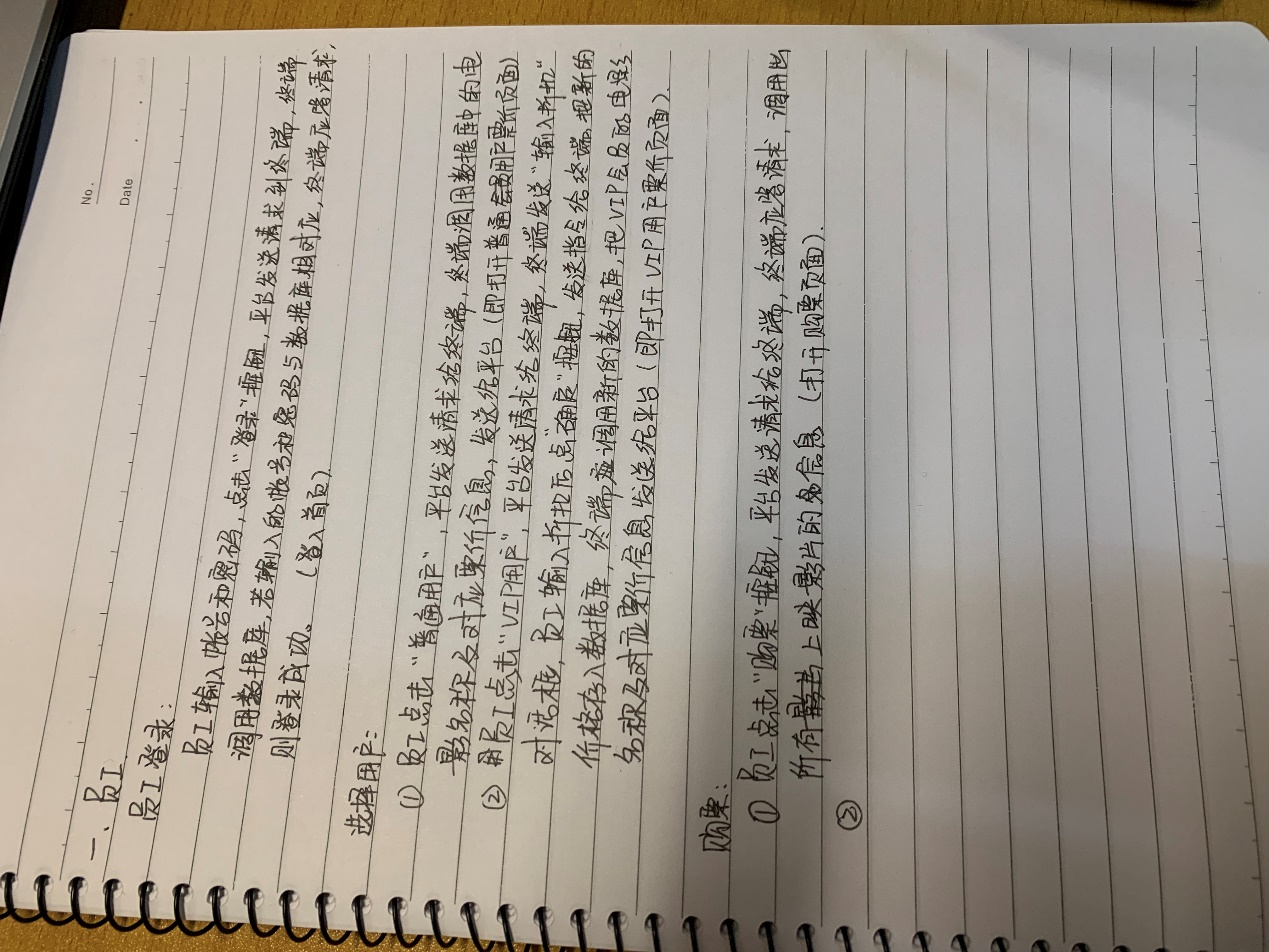 No.
Date
一、员工
员工登录:
员工输入帐号和密码,点击"登录"按钮,平台发送请求到终端,终端
调用数据库,若输入的帐号和密码与数据库相对应,终端应答请求,
则登录成功。(登入首页)
选择用户:
① 员工点击"普通用户",平台发送请求给终端,终端调用数据库中的电
影名称及对应票价信息,发送给平台(即打开普通用户票价页面)
② 员工点击"VIP用户",平台发送请求给终端,终端发送"输入折扣"
对话框,员工输入折扣后点"确定"按钮,发送指令给终端,把新的
价格存入数据库,终端调用新的数据库,把VIP会员的电影
名称及对应票价信息发送给平台(即打开VIP用户票价页面)
购票:
① 员工点击"购票"按钮,平台发送请求给终端,终端应答请求,调用出
所有上映影片的信息(打开购票页面).
②